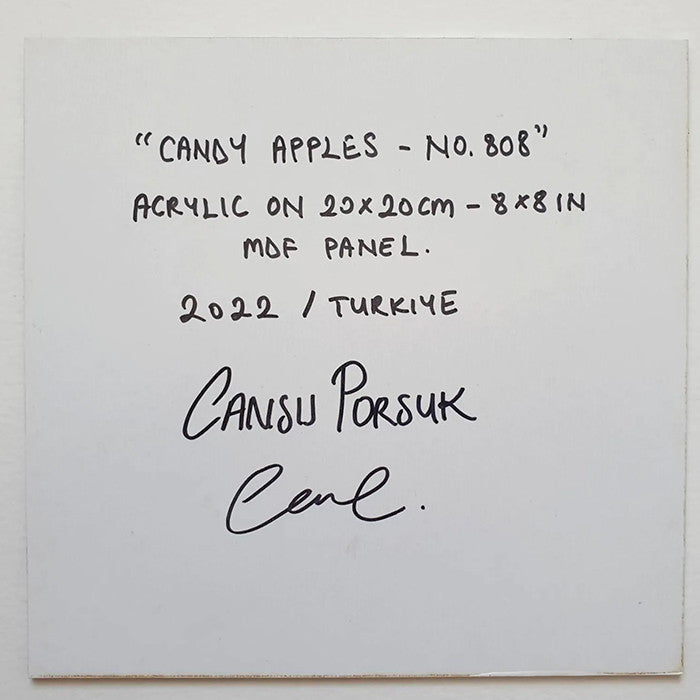 "CANDY APPLES - NO. 808"
ACRYLIC ON 20x20cm - 8x8 IN
MDF PANEL.
2022 / TURKIYE
CANSU PORSUK